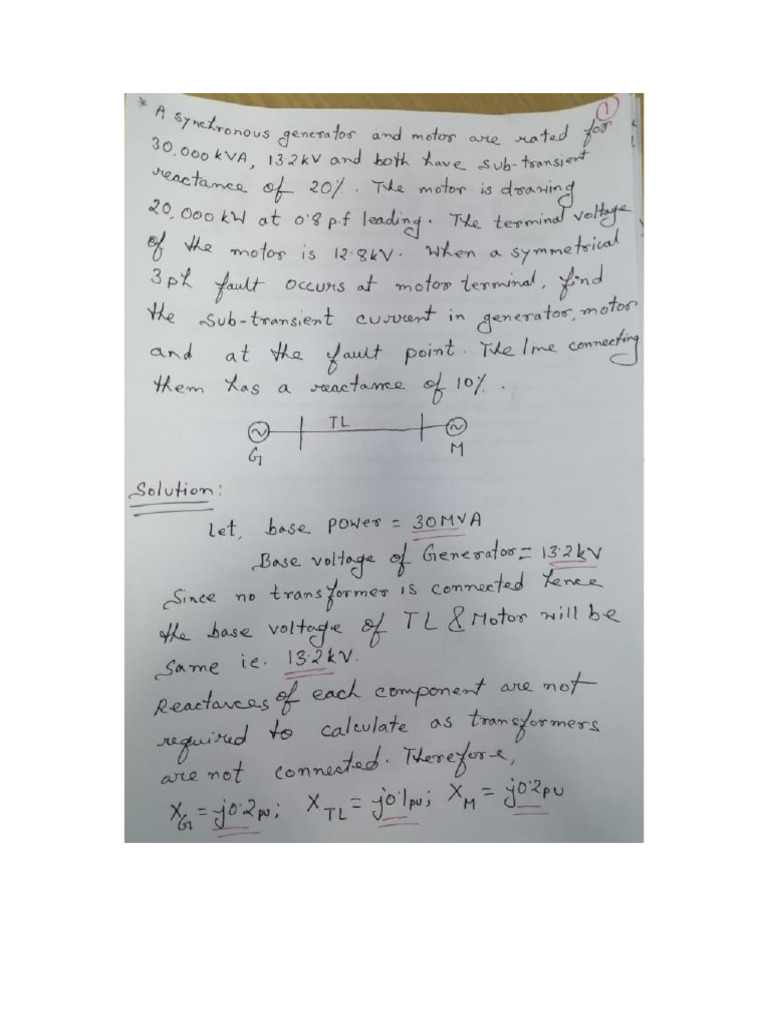 ①
* A synchronous generator and motor are rated for
30,000 kVA, 13.2kV and both have sub-transient
reactance of 20%. The motor is drawing
20,000 kW at 0.8 p.f leading. The terminal voltage
of the motor is 12.8kV. When a symmetrical
3 ph fault occurs at motor terminal, find
the sub-transient current in generator, motor
and at the fault point. The line connecting
them has a reactance of 10%.
TL
G M
Solution:
Let, base power = 30MVA
Base voltage of Generator = 13.2kV
Since no transformer is connected hence
the base voltage of TL & Motor will be
same ie. 13.2kV.
Reactances of each component are not
required to calculate as transformers
are not connected. Therefore,
X_G = j0.2pu; X_TL = j0.1pu; X_M = j0.2pu